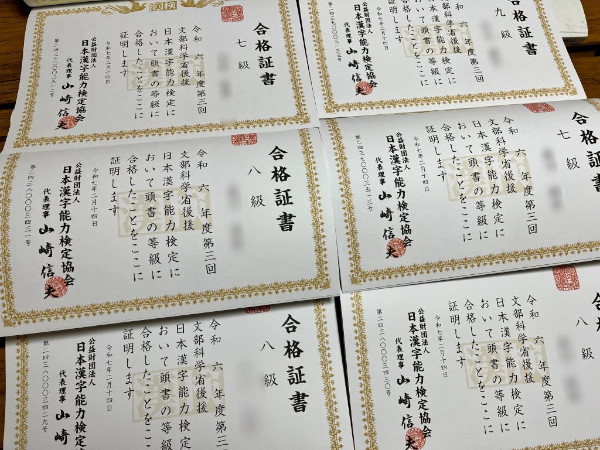 合格証書
七級
令和 六 年度第三回
文部科学省後援
日本漢字能力検定に
おいて頭書の等級に
合格したことをここに
証明します
令和七年二月十四日
公益財団法人
日本漢字能力検定協会
代表理事 山崎信夫
格証書
九級
六 年度第三回
文部科学省後援
日本漢字能力検定に
おいて頭書の等級に
合格したことをここに
証明します
令和七年二月十四日
公益財団法人
日本漢字能力検定協会
代表理事 山崎信夫
合格証書
八級
令和 六 年度第三回
文部科学省後援
日本漢字能力検定に
おいて頭書の等級に
合格したことをここに
証明します
令和七年二月十四日
公益財団法人
日本漢字能力検定協会
代表理事 山崎信夫
合格証書
七級
令和 六 年度第三回
文部科学省後援
日本漢字能力検定に
おいて頭書の等級に
合格したことをここに
証明します
令和七年二月十四日
公益財団法人
日本漢字能力検定協会
代表理事 山崎信夫
合格証書
八級
令和 六 年度第三回
文部科学省後援
日本漢字能力検定に
おいて頭書の等級に
合格したことをここに
証明します
令和七年二月十四日
公益財団法人
日本漢字能力検定協会
代表理事 山崎信
合格証書
八級
令和 六 年度第三回
文部科学省後援
日本漢字能力検定に
おいて頭書の等級に
合格したことをここに
証明します
令和七年二月十四日
公益財団法人
日本漢字能力検定協会
代表理事 山崎信夫